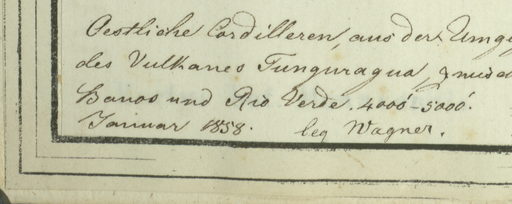 Oestliche Cordilleren, aus der Umg
des Vulkanes Tunguragua,
Banos und Rio Verde. 4000'-5000'.
Januar 1858. leg Wagner.